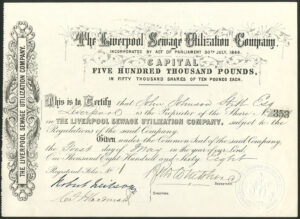 The Liverpool Sewage Utilization Company.
INCORPORATED BY ACT OF PARLIAMENT 30TH JULY, 1866.
CAPITAL
FIVE HUNDRED THOUSAND POUNDS,
IN FIFTY THOUSAND SHARES OF TEN POUNDS EACH.
This is to Certify that John Johnson Esq
Liverpool is the Proprietor of the Share No. 353
IN THE LIVERPOOL SEWAGE UTILIZATION COMPANY, subject to the
Regulations of the said Company.
Given under the Common Seal of the said Company,
the First day of May in the year of our Lord
One thousand Eight Hundred and Sixty Eight
Registered Folio No. 1
SECRETARY.
THE LIVERPOOL SEWAGE UTILIZATION COMPANY.